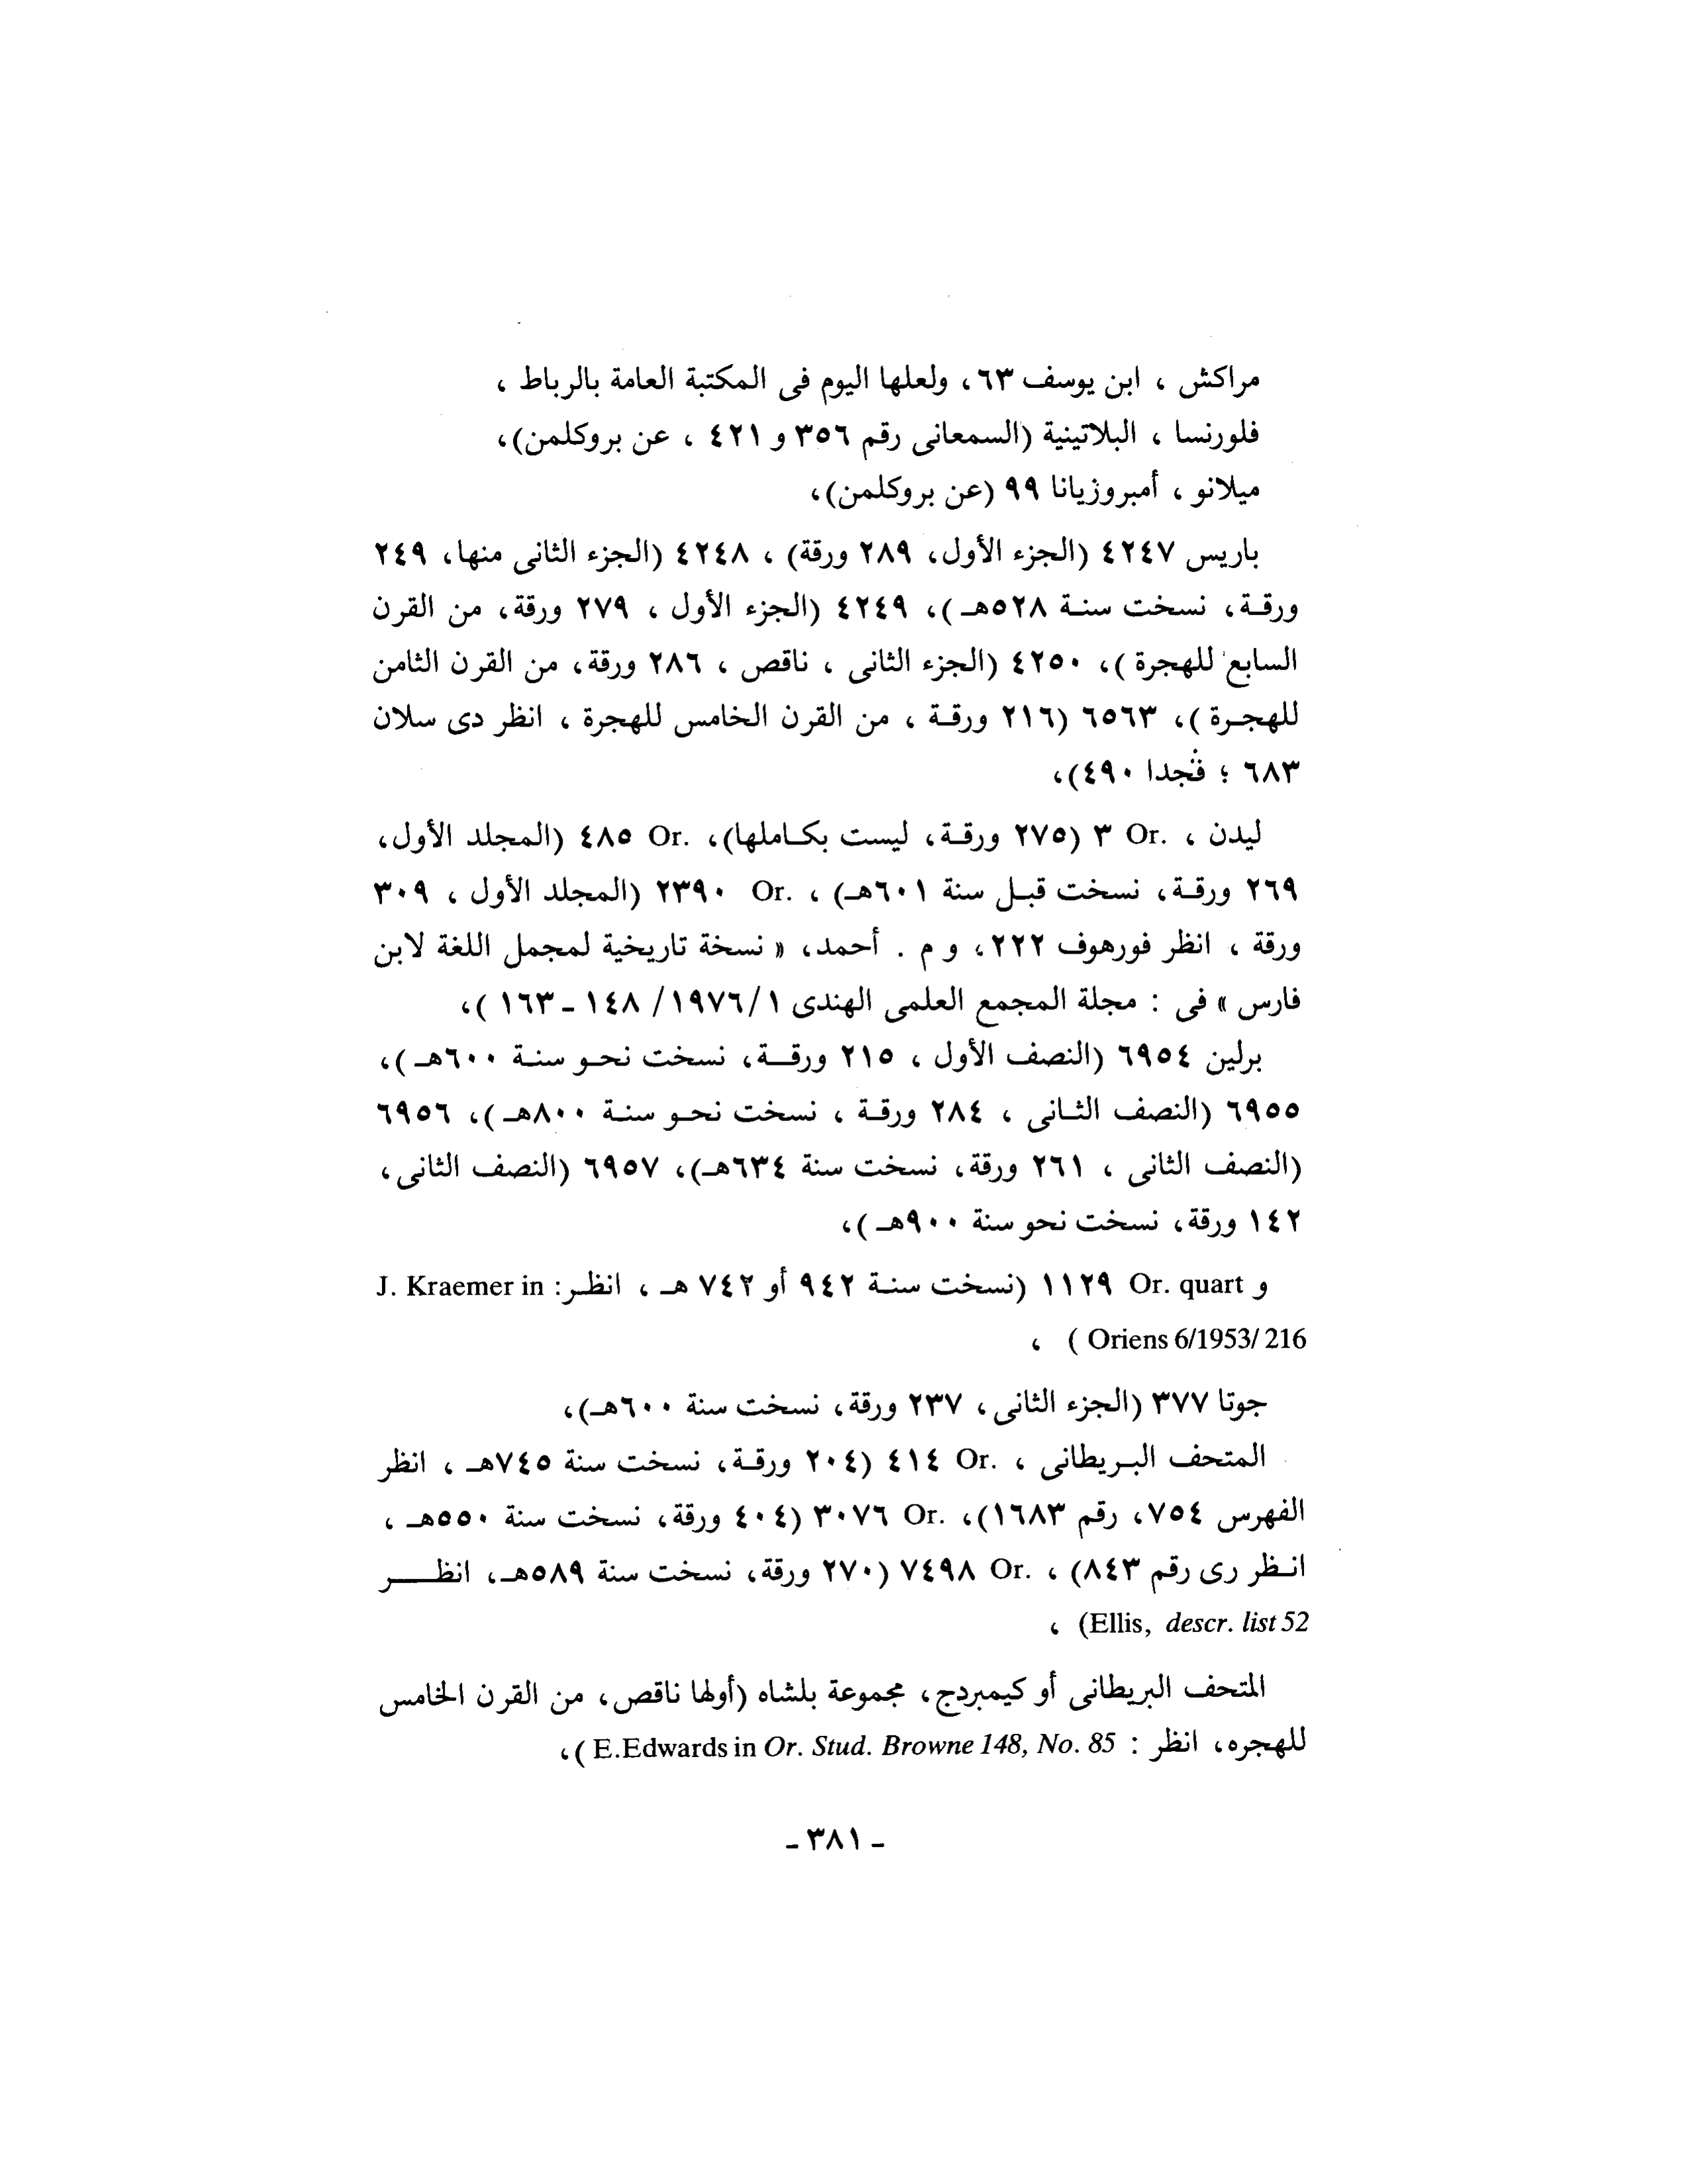 مراكش ، ابن يوسف ٦٣، ولعلها اليوم فى المكتبة العامة بالرباط ،
فلورنسا ، البلاتينية (السمعانى رقم ٣٥٦ و ٤٢١ ، عن بروكلمن)،
ميلانو ، أمبروزيانا ٩٩ (عن بروكلمن)،
باريس ٤٢٤٧ (الجزء الأول، ٢٨٩ ورقة) ، ٤٢٤٨ (الجزء الثانى منها، ٢٤٩
ورقة، نسخت سنة ٥٢٨هـ)، ٤٢٤٩ (الجزء الأول ، ٢٧٩ ورقة، من القرن
السابع للهجرة )، ٤٢٥٠ (الجزء الثانى ، ناقص ، ٢٨٦ ورقة، من القرن الثامن
للهجرة )، ٦٥٦٣ (٢١٦ ورقة ، من القرن الخامس للهجرة ، انظر دى سلان
٦٨٣ ؛ ڤجدا ٤٩٠)،
ليدن ، .Or ٣ (٢٧٥ ورقة، ليست بكاملها)، .Or ٤٨٥ (المجلد الأول،
٢٦٩ ورقة، نسخت قبل سنة ٦٠١هـ) ، .Or ٢٣٩٠ (المجلد الأول ، ٣٠٩
ورقة ، انظر فورهوف ٢٢٢، و م . أحمد، « نسخة تاريخية لمجمل اللغة لابن
فارس » فى : مجلة المجمع العلمى الهندى ١/١٩٧٦/ ١٤٨ - ١٦٣ )،
برلين ٦٩٥٤ (النصف الأول ، ٢١٥ ورقة، نسخت نحو سنة ٦٠٠هـ )،
٦٩٥٥ (النصف الثانى ، ٢٨٤ ورقة ، نسخت نحو سنة ٨٠٠هـ )، ٦٩٥٦
(النصف الثانى ، ٢٦١ ورقة، نسخت سنة ٦٣٤هـ)، ٦٩٥٧ (النصف الثانى،
١٤٢ ورقة، نسخت نحو سنة ٩٠٠هـ )،
و Or. quart ١١٢٩ (نسخت سنة ٩٤٢ أو ٧٤٢ هـ ، انظر: J. Kraemer in
Oriens 6/1953/ 216 ) ،
جوتا ٣٧٧ (الجزء الثانى، ٢٣٧ ورقة، نسخت سنة ٦٠٠هـ)،
المتحف البريطانى ، .Or ٤١٤ (٢٠٤ ورقة، نسخت سنة ٧٤٥هـ ، انظر
الفهرس ٧٥٤، رقم ١٦٨٣)، .Or ٣٠٧٦ (٤٠٤ ورقة، نسخت سنة ٥٥٠هـ ،
انظر رى رقم ٨٤٣) ، .Or ٧٤٩٨ (٢٧٠ ورقة، نسخت سنة ٥٨٩هـ، انظر
Ellis, descr. list 52) ،
المتحف البريطانى أو كيمبردج، مجموعة بلشاه (أولها ناقص، من القرن الخامس
للهجره، انظر : E.Edwards in Or. Stud. Browne 148, No. 85 )،
- ٣٨١ -